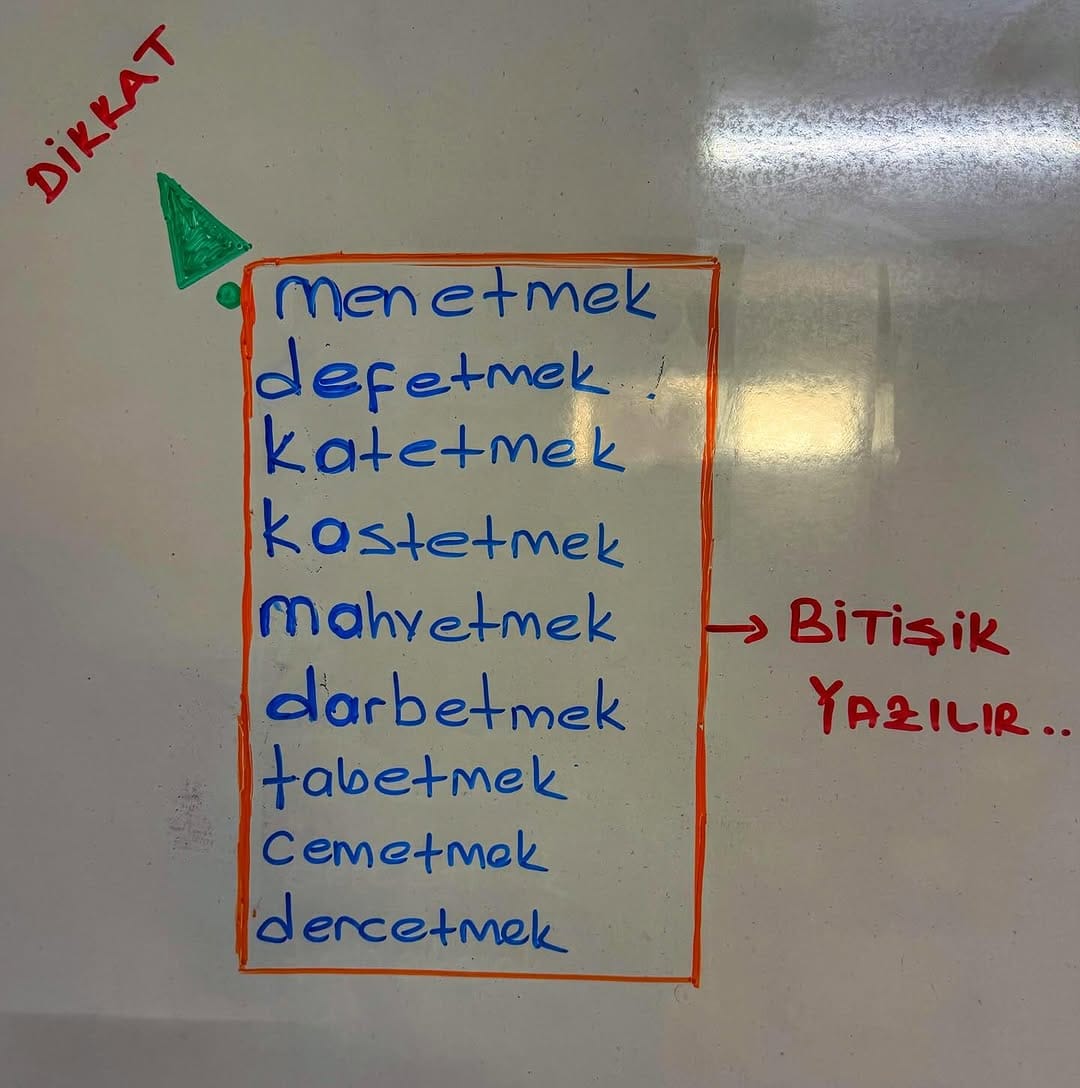 DİKKAT
menetmek
defetmek
katetmek
kastetmek
mahvetmek
darbetmek
tabetmek
cemetmek
dercetmek
→ BİTİŞİK
YAZILIR..